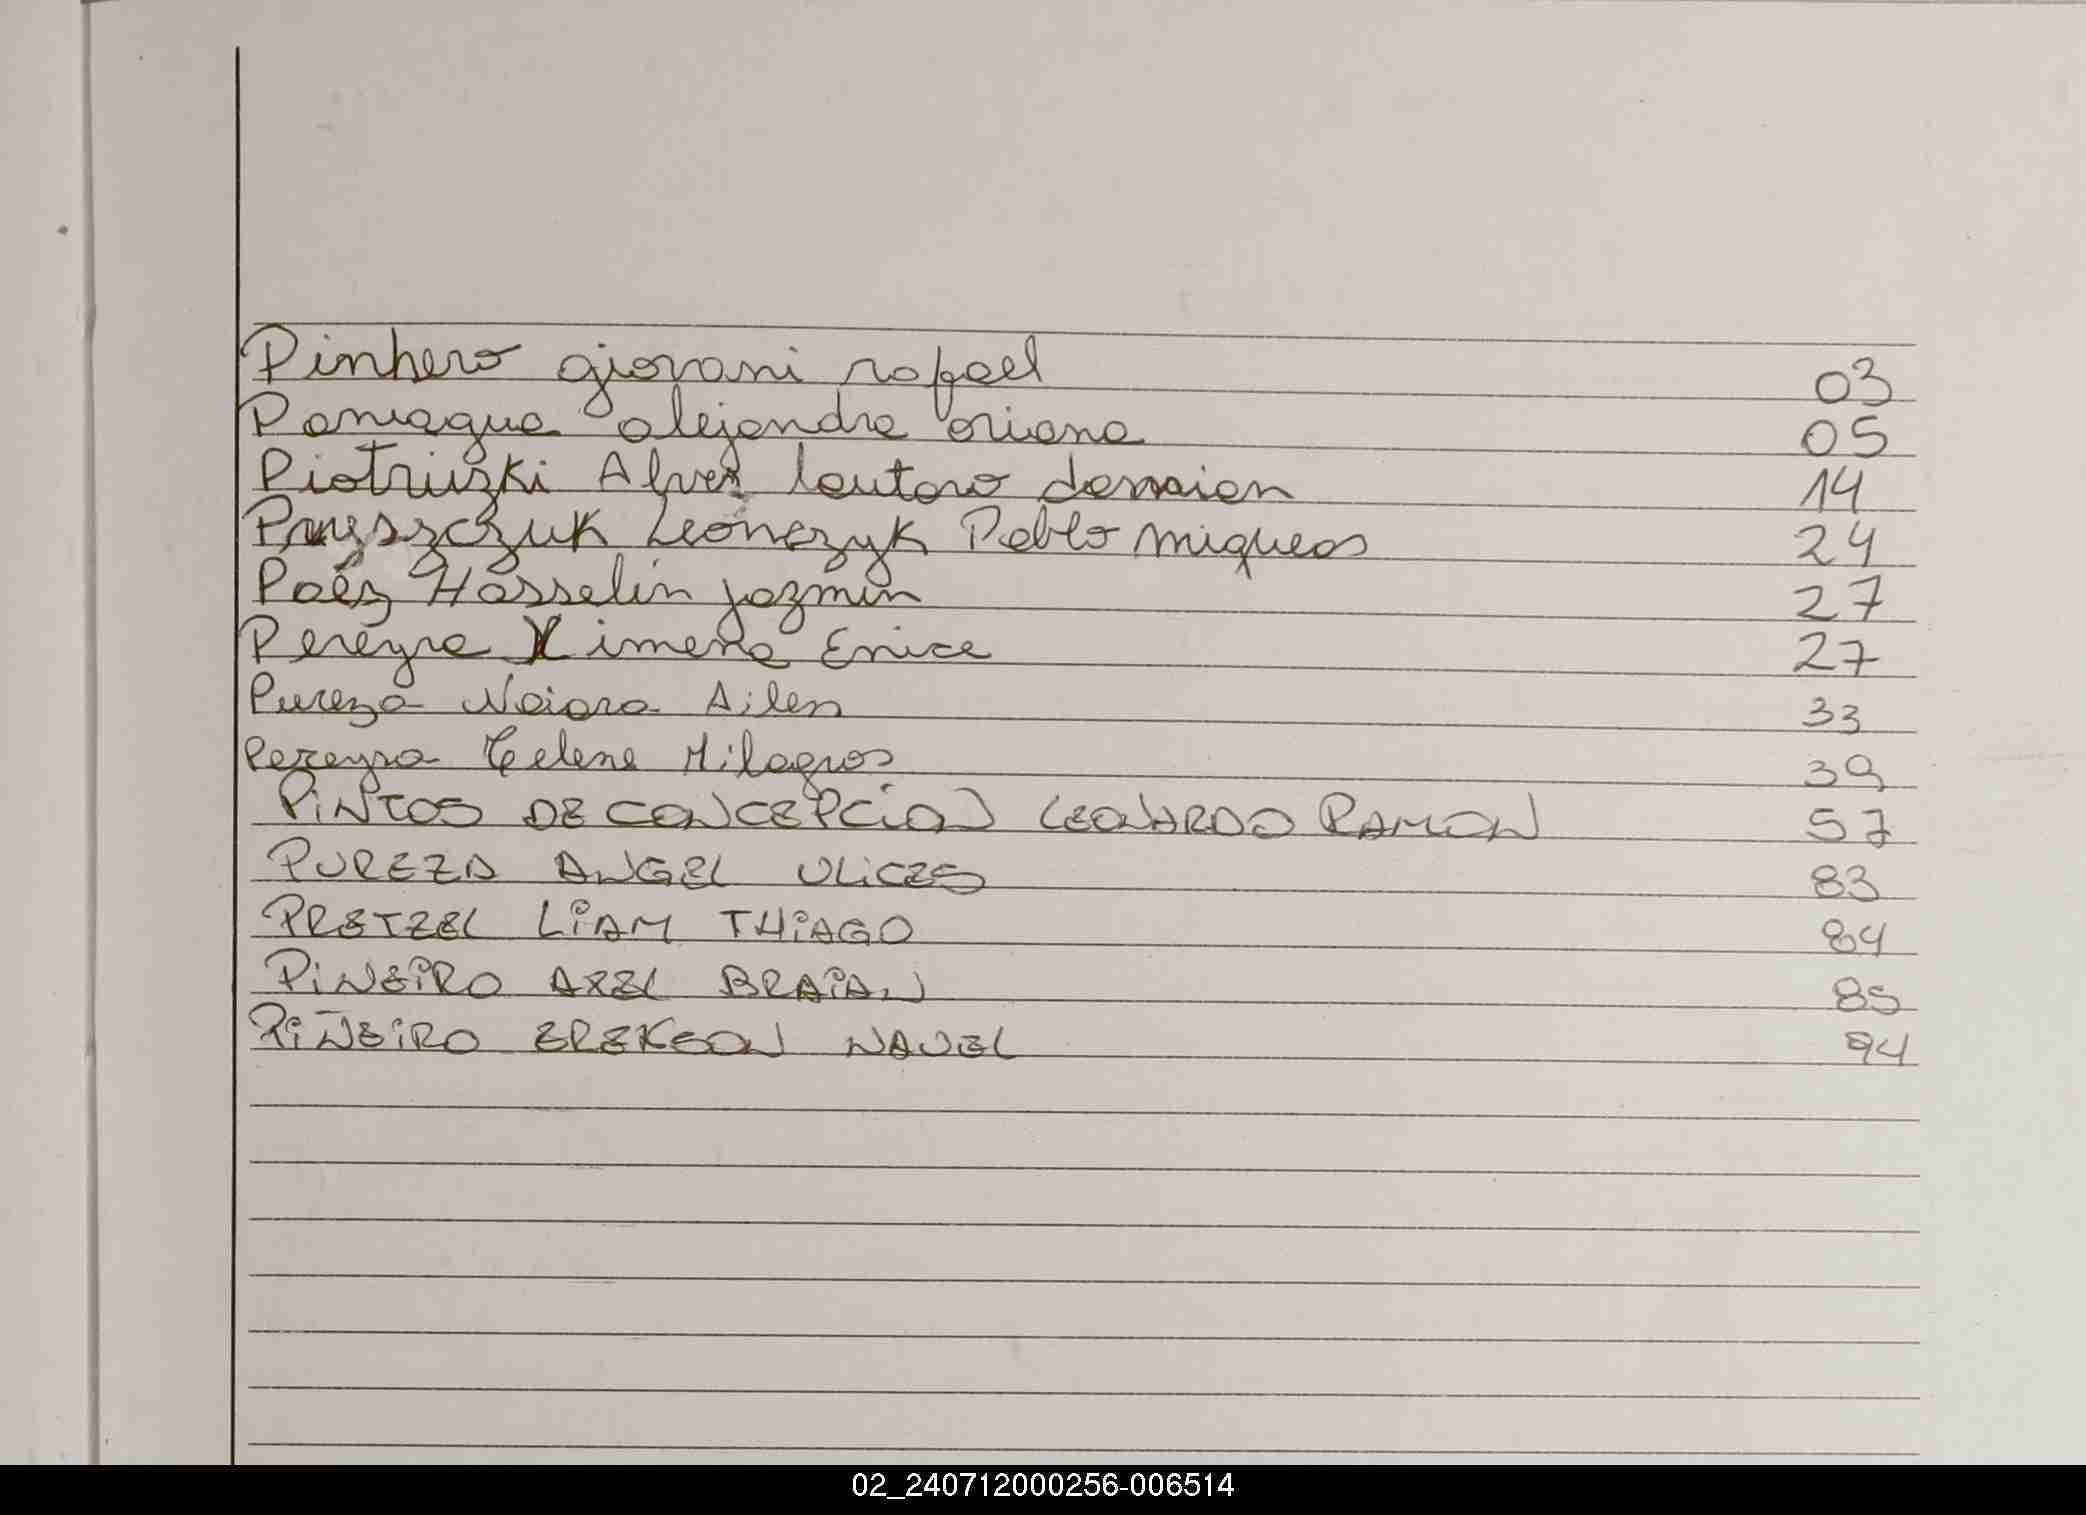 Pinhero giovani rafael 03
Paniagua alejandra oriana 05
Piotriuzki Alvez lautaro damian 14
Pruyszczuk Leonczyk Pablo Miqueas 24
Paéz Hosselin jazmin 27
Pereyra Ximena Enice 27
Pureza Naiara Ailen 33
Pereyra Celene Milagros 39
PiNTOS DE CONCEPCiON LEONARDO RAMON 57
PUREZA ANGEL ULiCES 83
PRETZEL LiAM THiAGO 84
PiNEiRO AXEL BRAiAN 85
PiÑEiRO EREKSON NAUEL 94
02_240712000256-006514